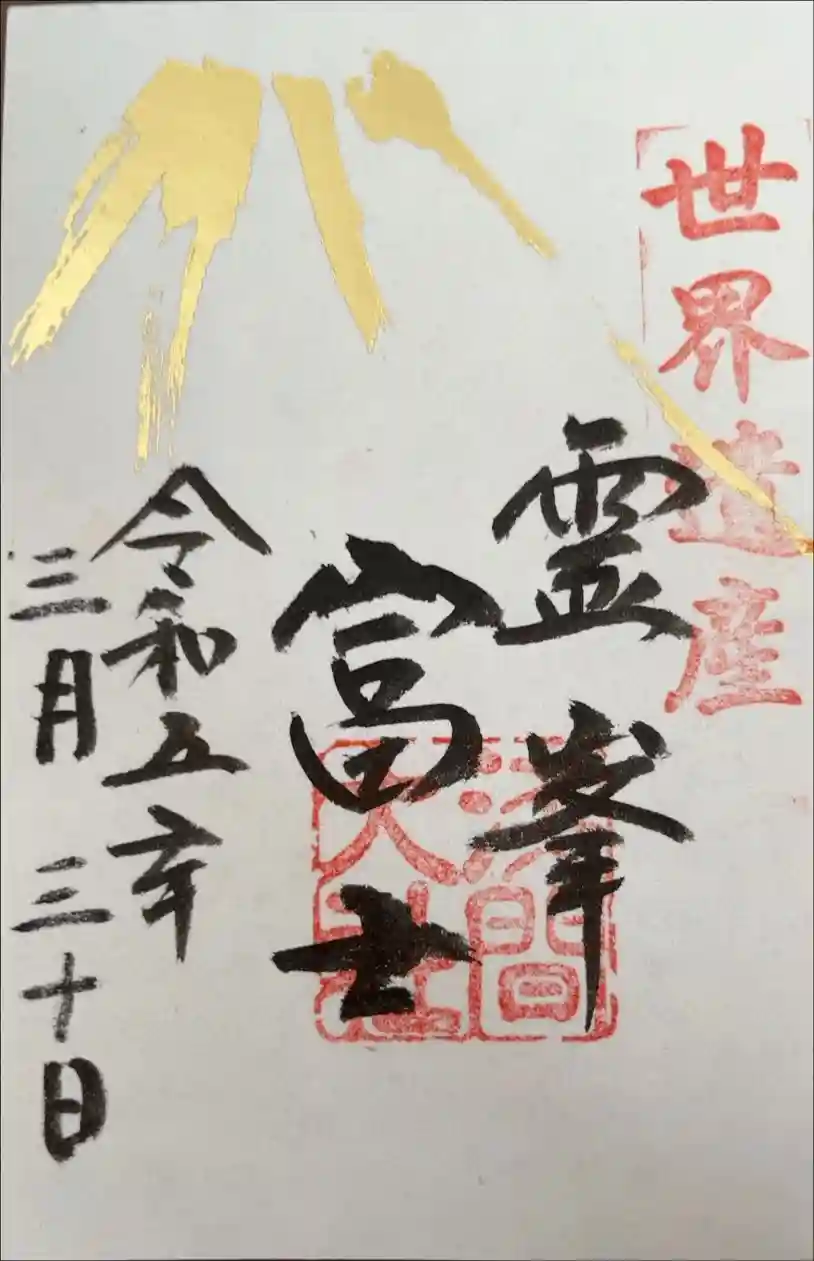 世界遺産
霊峯
富士
浅間
大社
令和五年
三月三十日